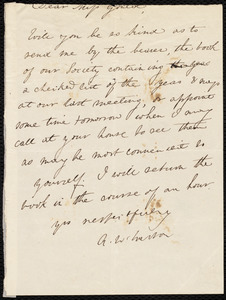 Dear Miss
Will you be so kind as to
send me by the bearer, the book
of our Society containing
a checked list of the yeas & nays
at our last meeting. Or appoint
some time tomorrow when I may
call at your house to see them
as may be most convenient to
yourself. I will return the
book in the course of an hour
yrs respectfully